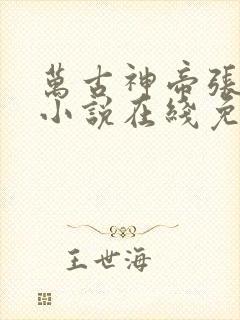 萬古神帝張
小說在綫免
王世海